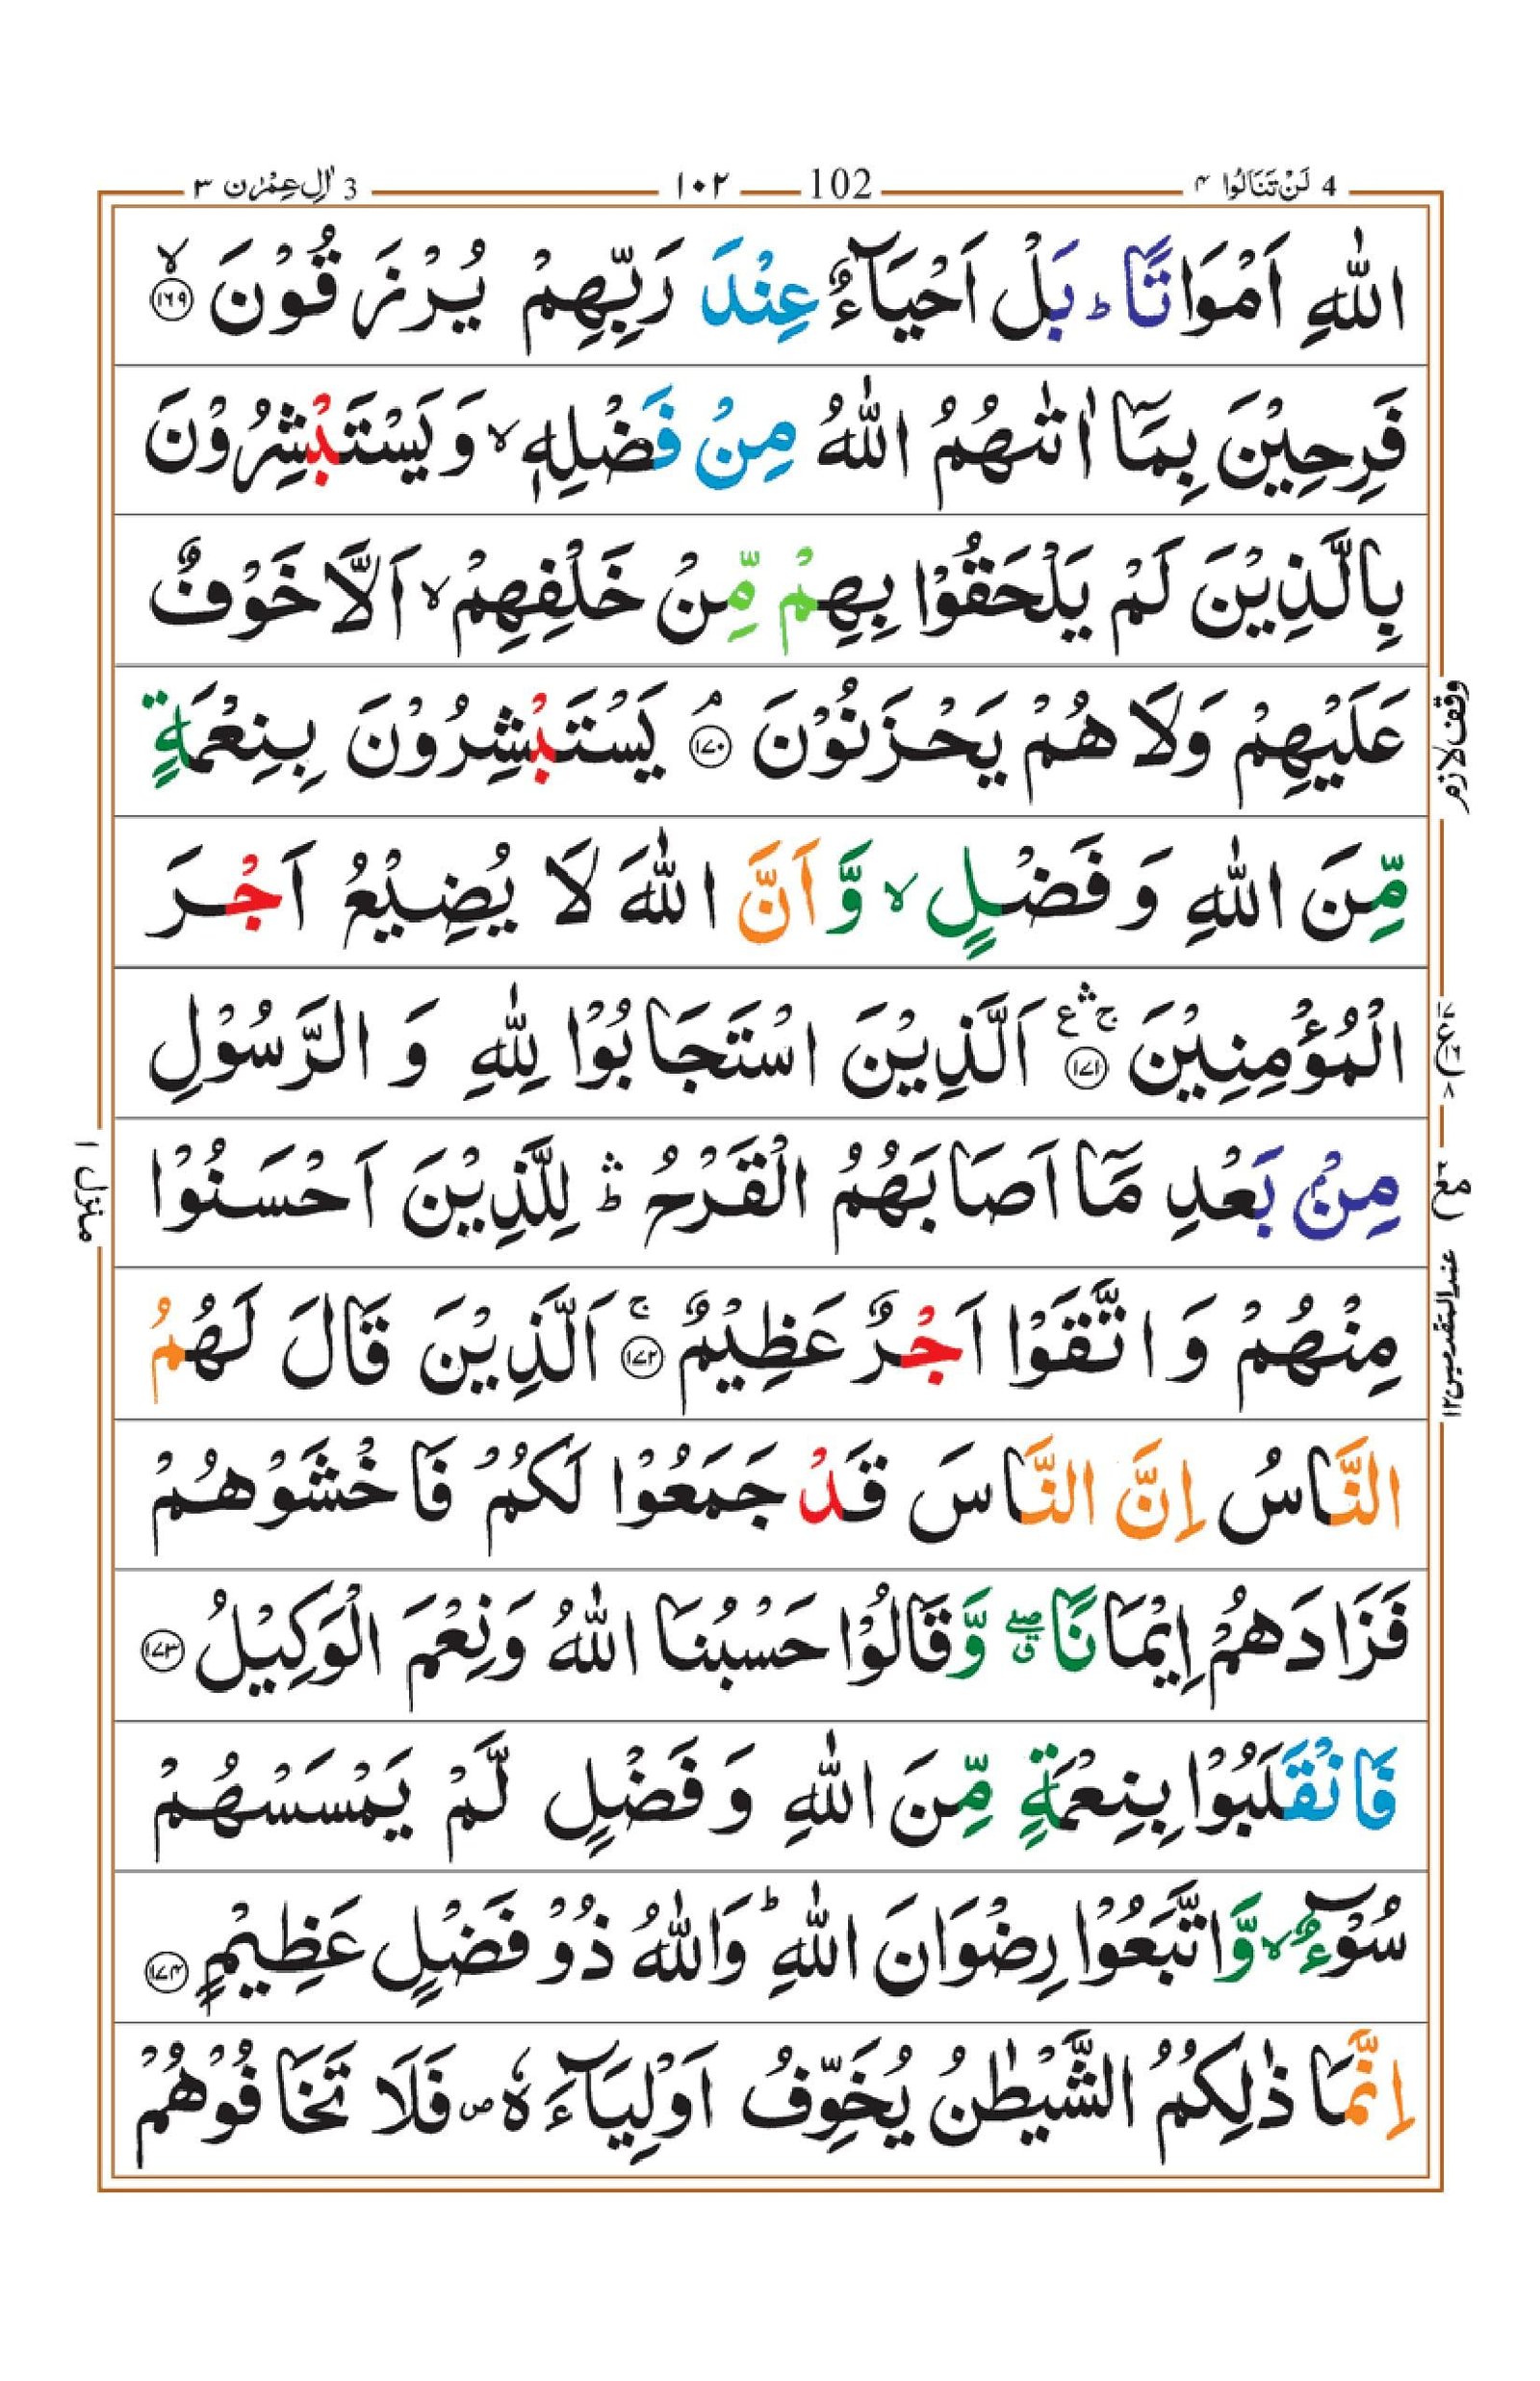 4 لَنْ تَنَالُوا ۴ 102 ۱۰۲ 3 اٰلِ عِمْرٰن ۳
اللّٰهِ اَمْوَاتًا ؕ بَلْ اَحْيَآءٌ عِنْدَ رَبِّهِمْ يُرْزَقُوْنَ ۙ‏﴿۱۶۹﴾
فَرِحِيْنَ بِمَاۤ اٰتٰٮهُمُ اللّٰهُ مِنْ فَضْلِهٖ ۙ وَيَسْتَبْشِرُوْنَ
بِالَّذِيْنَ لَمْ يَلْحَقُوْا بِهِمْ مِّنْ خَلْفِهِمْ ۙ اَلَّا خَوْفٌ
عَلَيْهِمْ وَلَا هُمْ يَحْزَنُوْنَ ۘ‏﴿۱۷۰﴾ يَسْتَبْشِرُوْنَ بِنِعْمَةٍ
وقف لازم
مِّنَ اللّٰهِ وَ فَضْلٍ ۙ وَّ اَنَّ اللّٰهَ لَا يُضِيْعُ اَجْرَ
الْمُؤْمِنِيْنَ ۚۛ ع ‏﴿۱۷۱﴾ اَلَّذِيْنَ اسْتَجَابُوْا لِلّٰهِ وَ الرَّسُوْلِ
مِنْۢ بَعْدِ مَاۤ اَصَابَهُمُ الْقَرْحُ ؕۛ لِلَّذِيْنَ اَحْسَنُوْا
منزل ۱
مِنْهُمْ وَ اتَّقَوْا اَجْرٌ عَظِيْمٌ ۚ‏﴿۱۷۲﴾ اَلَّذِيْنَ قَالَ لَهُمُ
عند المتقدمين ۱۲
النَّاسُ اِنَّ النَّاسَ قَدْ جَمَعُوْا لَكُمْ فَاخْشَوْهُمْ
فَزَادَهُمْ اِيْمَانًا ۖق وَّقَالُوْا حَسْبُنَا اللّٰهُ وَنِعْمَ الْوَكِيْلُ ‏﴿۱۷۳﴾
فَانْقَلَبُوْا بِنِعْمَةٍ مِّنَ اللّٰهِ وَ فَضْلٍ لَّمْ يَمْسَسْهُمْ
سُوْٓءٌ ۙ وَّ اتَّبَعُوْا رِضْوَانَ اللّٰهِ ؕ وَاللّٰهُ ذُوْ فَضْلٍ عَظِيْمٍ ‏﴿۱۷۴﴾
اِنَّمَا ذٰلِكُمُ الشَّيْطٰنُ يُخَوِّفُ اَوْلِيَآءَهٗ ص فَلَا تَخَافُوْهُمْ